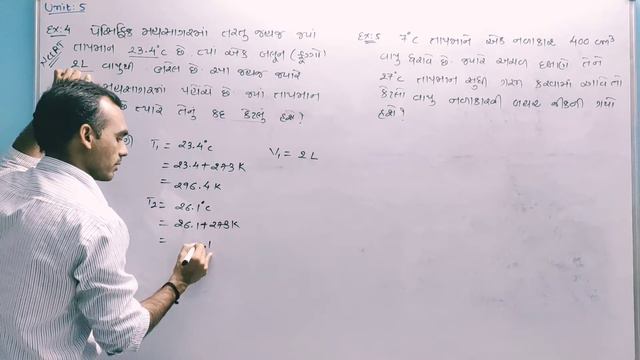 Unit: 5
Ex: 4 પેસિફિક મહાસાગરમાં તરતું જહાજ જ્યાં
NCERT તાપમાન 23.4°C છે. ત્યાં એક બલૂન (ફુગ્ગો)
2L વાયુથી ભરેલ છે.
મહાસાગરમાં પહોંચે છે. જ્યાં તાપમાન
છે ત્યારે તેનું કદ કેટલું હશે?
T₁ = 23.4°C
= 23.4 + 273 K
= 296.4 K
T₂ = 26.1°C
= 26.1 + 273 K
=
V₁ = 2 L
Ex: 5 7°C તાપમાને એક નળાકાર 400 cm³
વાયુ ધરાવે છે. જ્યારે અચળ દબાણે તેને
27°C તાપમાન સુધી ગરમ કરવામાં આવે તો
કેટલા વાયુ નળાકારની બહાર નીકળી ગયો
હશે?